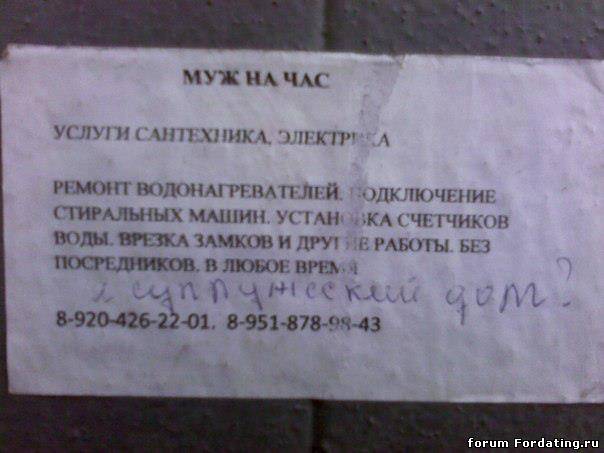 МУЖ НА ЧАС
УСЛУГИ САНТЕХНИКА, ЭЛЕКТРИКА
РЕМОНТ ВОДОНАГРЕВАТЕЛЕЙ. ПОДКЛЮЧЕНИЕ
СТИРАЛЬНЫХ МАШИН. УСТАНОВКА СЧЕТЧИКОВ
ВОДЫ. ВРЕЗКА ЗАМКОВ И ДРУГИЕ РАБОТЫ. БЕЗ
ПОСРЕДНИКОВ. В ЛЮБОЕ ВРЕМЯ
а супружеский долг?
8-920-426-22-01, 8-951-878-98-43
forum Fordating.ru